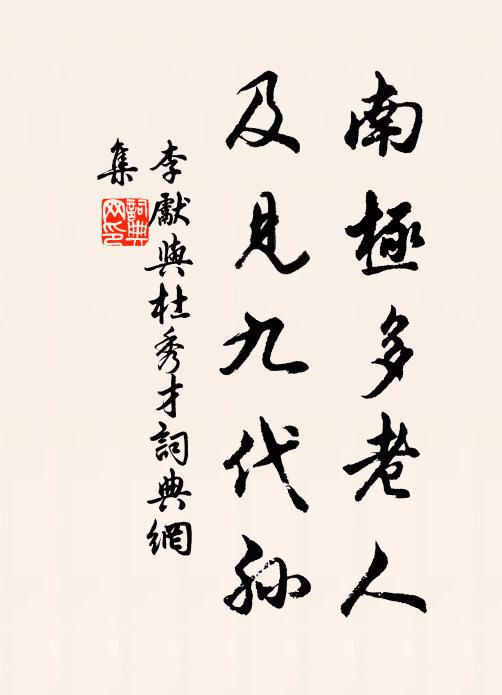 南極多老人
及見九代孫
李獻與杜秀才詞典網
集
詞典
网印